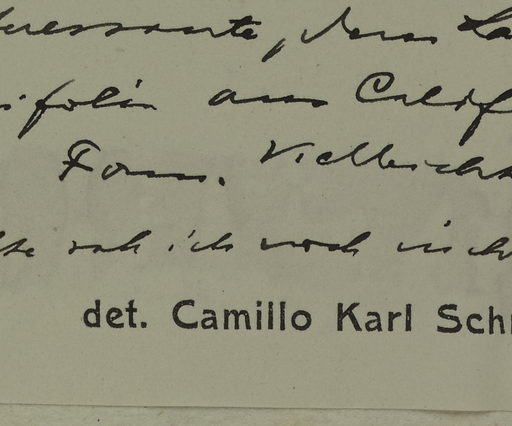 teressante, dem La
ifolia aus Calif
Form. Vielleicht
te sah ich noch nicht
det. Camillo Karl Sch